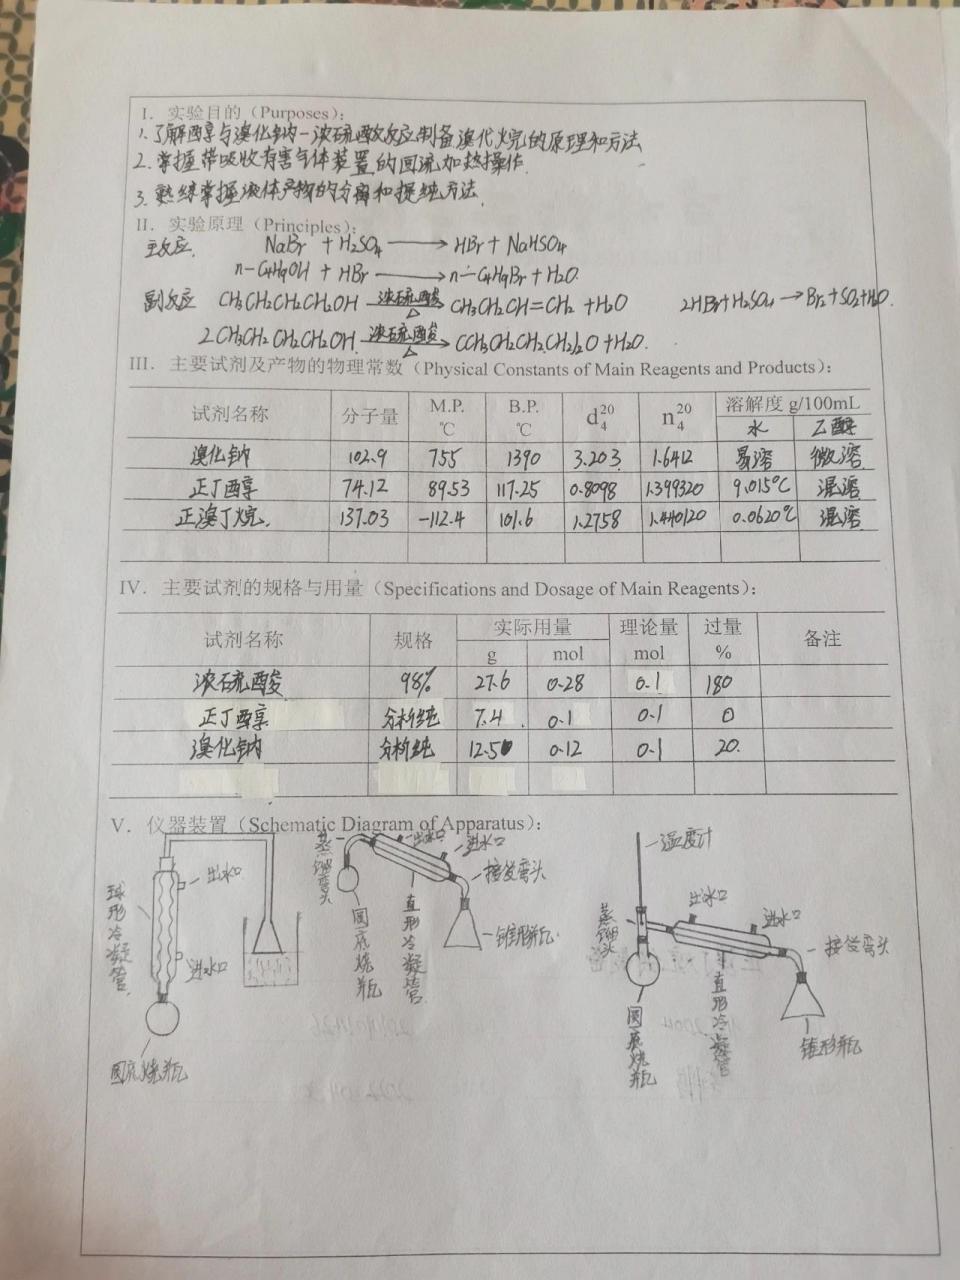 I. 实验目的（Purposes）：
1.了解醇与溴化钠-浓硫酸反应制备溴代烷的原理和方法
2.掌握带吸收有害气体装置的回流加热操作.
3.熟练掌握液体产物的分离和提纯方法.
II. 实验原理（Principles）：
主反应. NaBr + H2SO4 ⟶ HBr + NaHSO4
n-C4H9OH + HBr ⟶ n-C4H9Br + H2O.
副反应 CH3CH2CH2CH2OH 浓硫酸 △ ⟶ CH3CH2CH=CH2 + H2O 2HBr+H2SO4 → Br2+SO2+H2O.
2CH3CH2CH2CH2OH 浓硫酸 △ ⟶ (CH3CH2CH2CH2)2O + H2O.
III. 主要试剂及产物的物理常数（Physical Constants of Main Reagents and Products）：
试剂名称 分子量 M.P. ℃ B.P. ℃ d₄²⁰ n₄²⁰ 溶解度 g/100mL
水 乙醇
溴化钠 102.9 755 1390 3.203 1.6412 易溶 微溶
正丁醇 74.12 89.53 117.25 0.8098 1.399320 9.015℃ 混溶
正溴丁烷. 137.03 -112.4 101.6 1.2758 1.440120 0.0620℃ 混溶
IV. 主要试剂的规格与用量（Specifications and Dosage of Main Reagents）：
试剂名称 规格 实际用量 理论量 过量 备注
g mol mol %
浓硫酸 98% 27.6 0.28 0.1 180
正丁醇 分析纯 7.4 0.1 0.1 0
溴化钠 分析纯 12.50 0.12 0.1 20.
V. 仪器装置（Schematic Diagram of Apparatus）：
球形冷凝管
出水口
进水口
圆底烧瓶
蒸馏弯头
出水口
进水口
接受弯头
圆底烧瓶
直形冷凝管
锥形瓶
温度计
蒸馏头
出水口
进水口
接受弯头
圆底烧瓶
直形冷凝管
锥形瓶